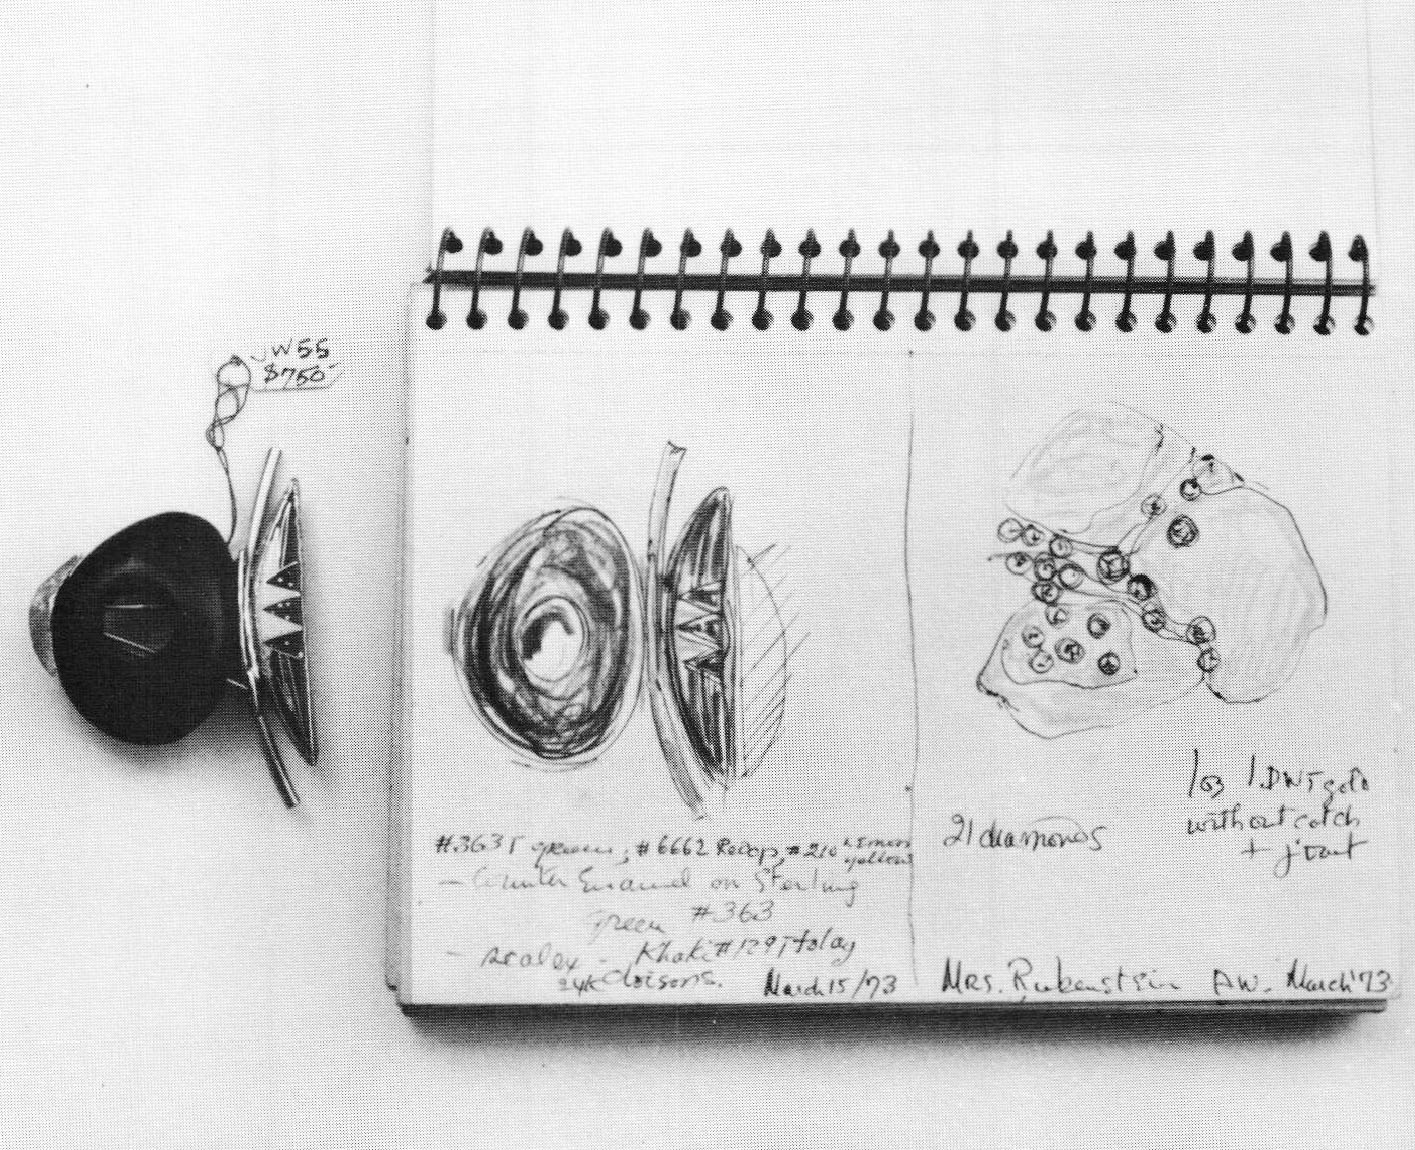 JW55
$750
#363T green, #6662 #210 Lemon
yellow
— Counter Enamel on Sterling
green #363
— Khaki #129T
24K cloisons. March 15/73
21 diamonds
1 DWT gold
without catch
+ joint
Mrs. Rubenstein AW. March '73